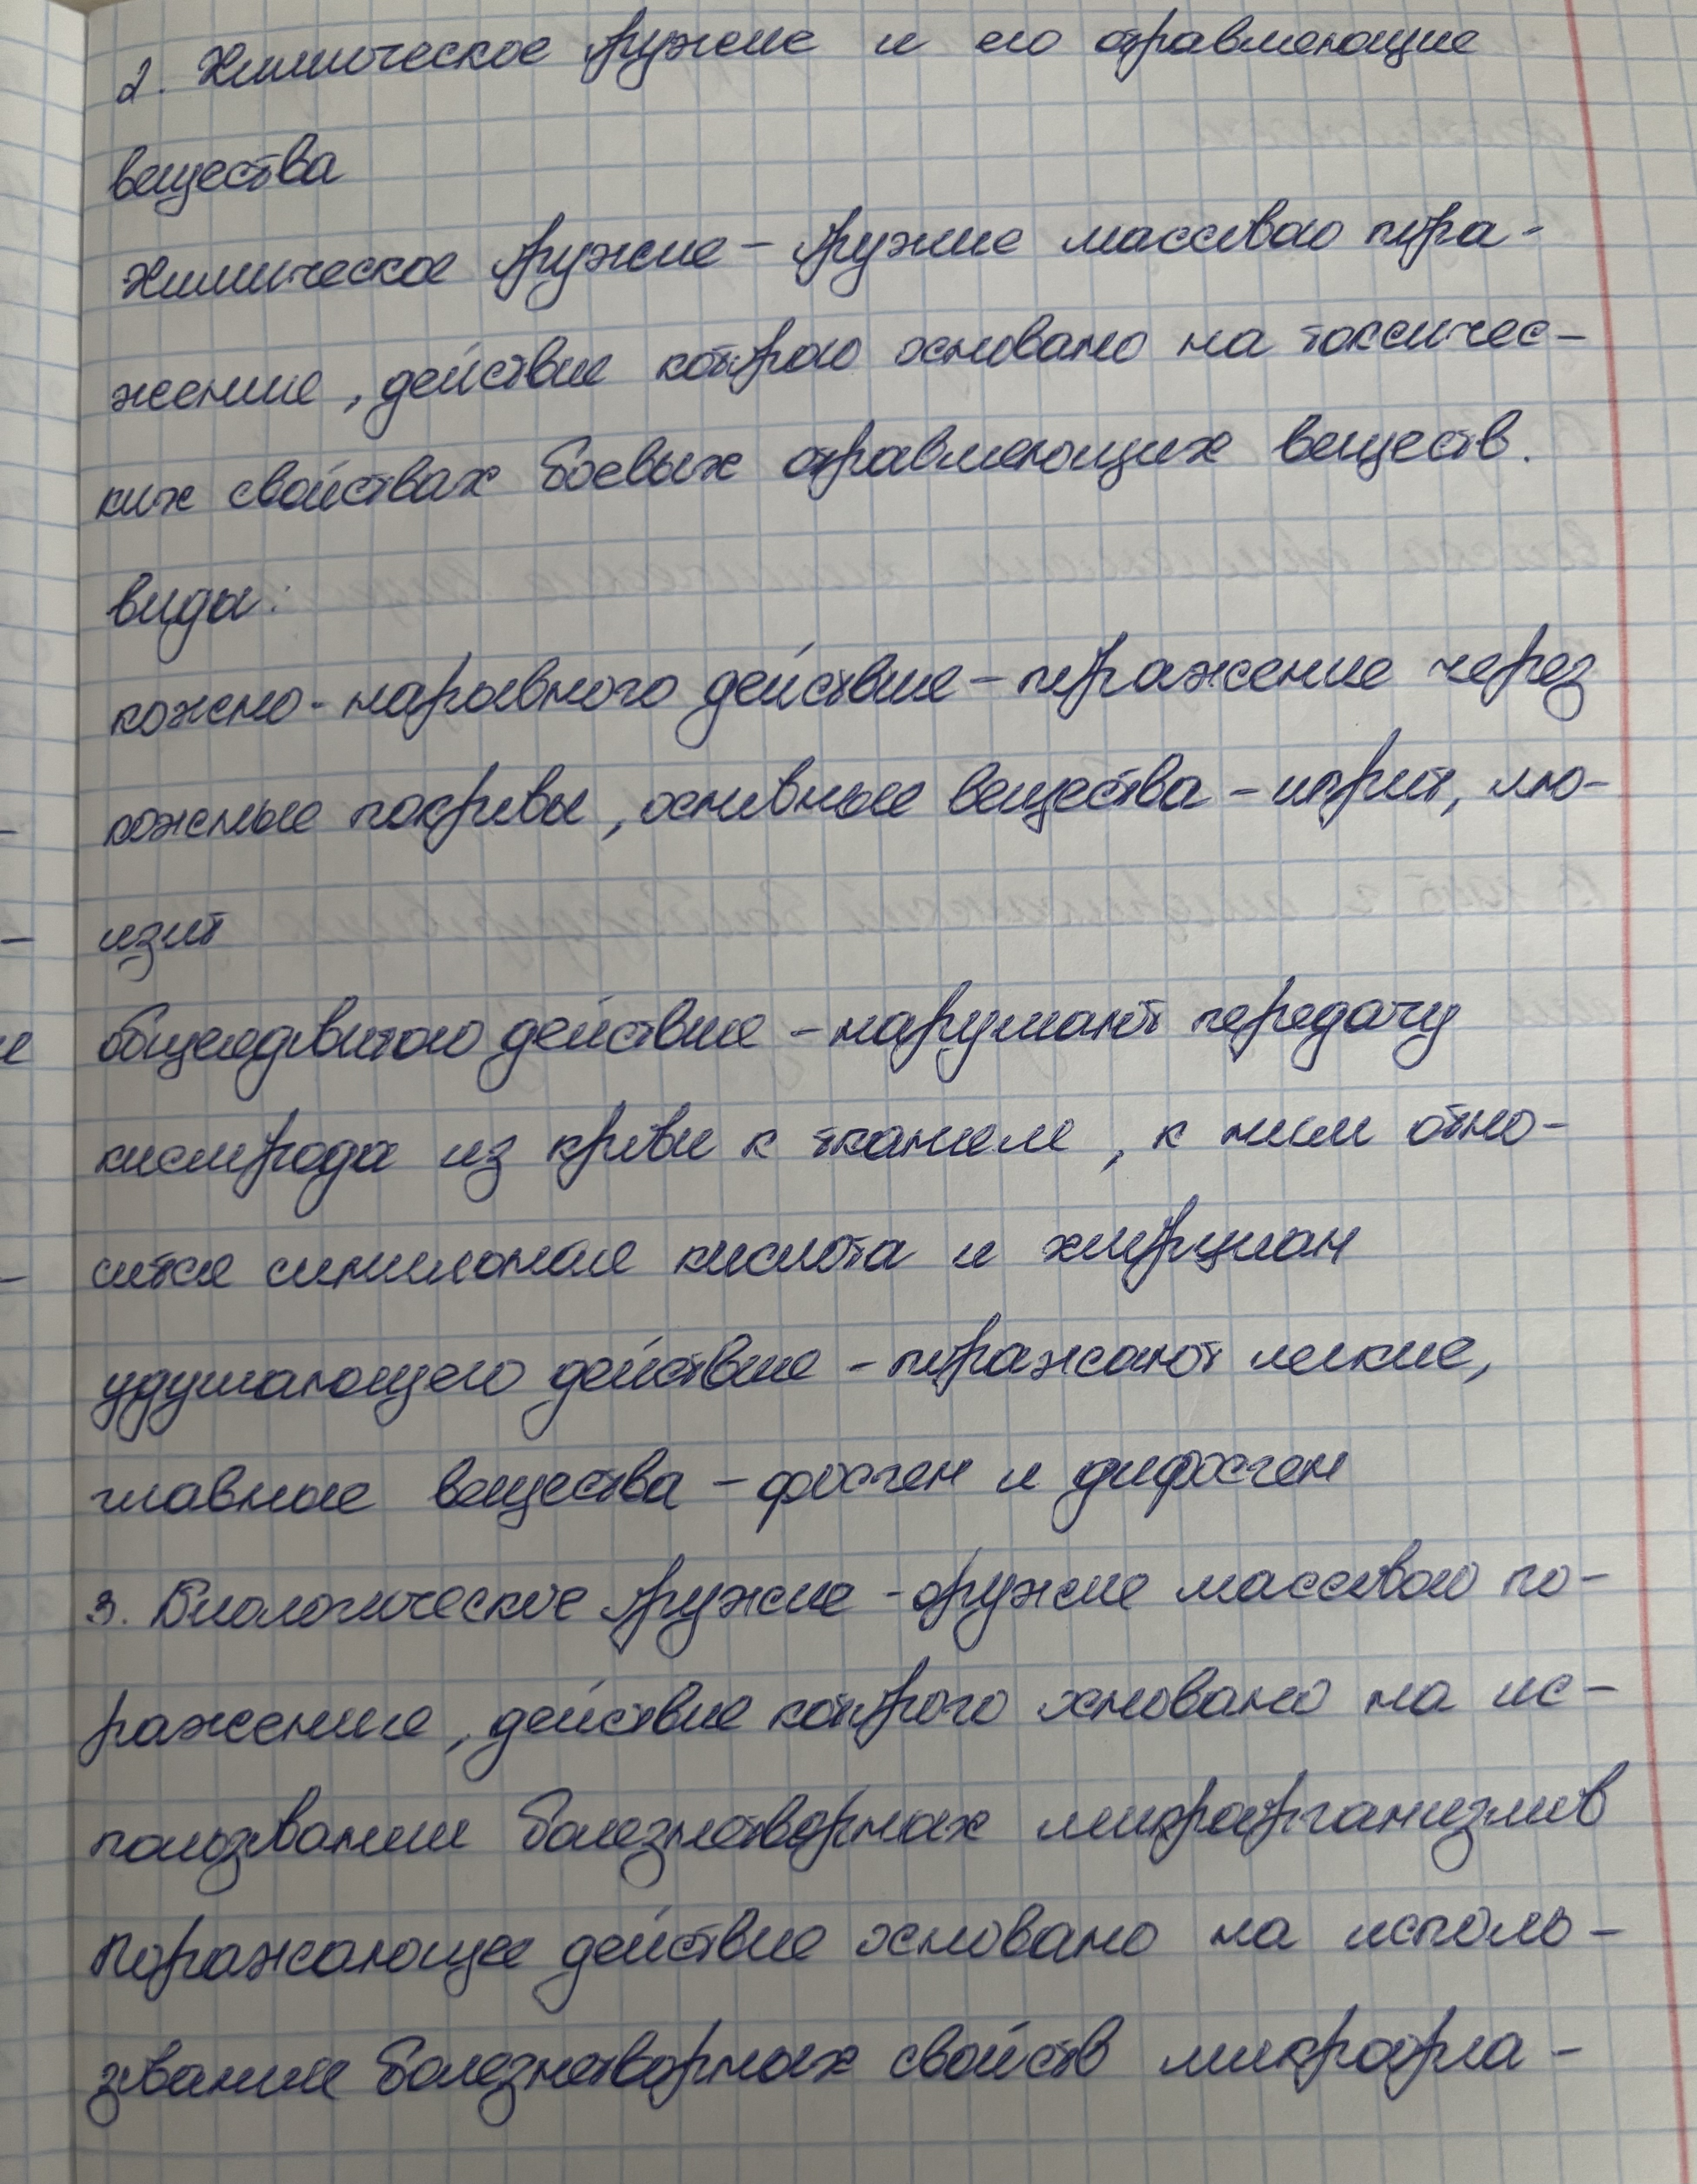 2. Химическое оружие и его отравляющие
вещества
Химическое оружие – оружие массового пора-
жения, действие которого основано на токсичес-
ких свойствах боевых отравляющих веществ.
виды:
кожно-нарывного действия – поражение через
кожные покровы, основные вещества – иприт, лю-
изит
общеядовитого действия – нарушают передачу
кислорода из крови к тканям, к ним отно-
сится синильная кислота и хлорциан
удушающего действия – поражают легкие,
главные вещества – фосген и дифосген
3. Биологическое оружие – оружие массового по-
ражения, действие которого основано на ис-
пользовании болезнетворных микроорганизмов
Поражающее действие основано на исполь-
зовании болезнетворных свойств микроорга-